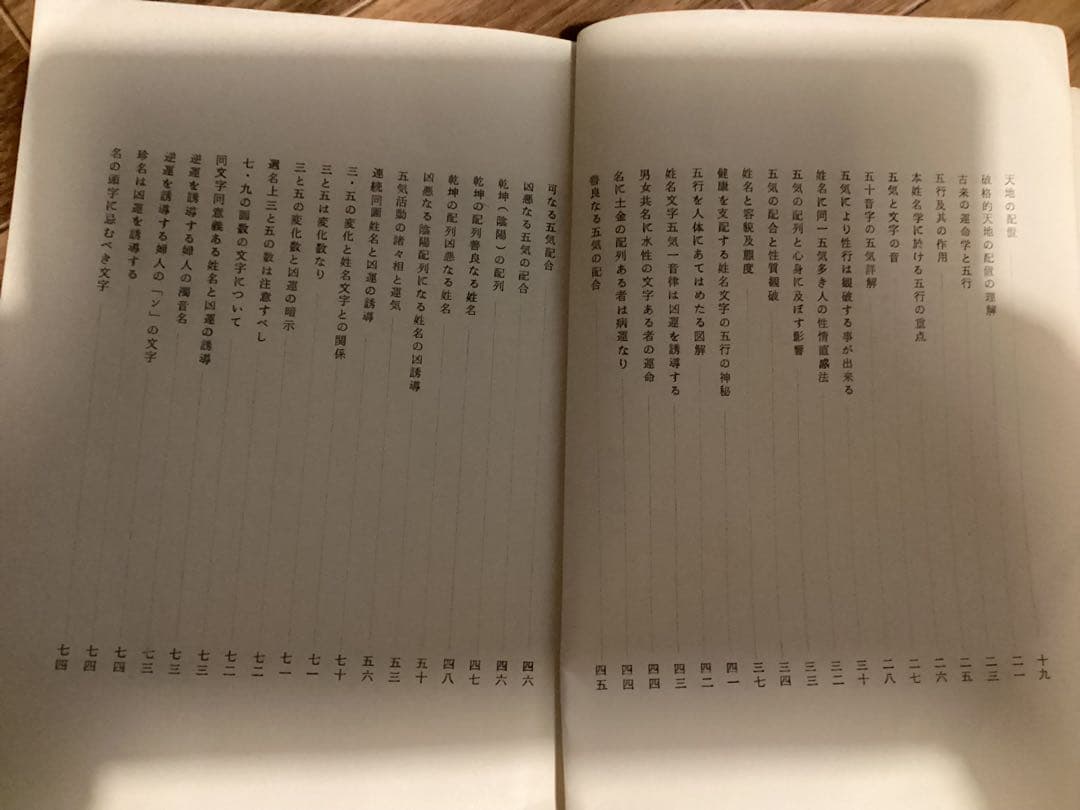 天地の配置 十九
破格的天地の配置の理解 二一
古来の運命学と五行 二三
五行及其の作用 二五
本姓名学に於ける五行の重点 二六
五気と文字の音 二七
五十音字の五気詳解 二八
五気により性行は観破する事が出来る 三十
姓名に同一五気多き人の性情直感法 三二
五気の配列と心身に及ぼす影響 三三
五気の配合と性質観破 三四
姓名と容貌及態度 三七
健康を支配する姓名文字の五行の神秘 四一
五行を人体にあてはめたる図解 四二
姓名文字五気一音律は凶運を誘導する 四三
男女共名に水性の文字ある者の運命 四四
名に土金の配列ある者は病運なり 四四
善良なる五気の配合 四五
可なる五気配合 四六
凶悪なる五気の配合 四六
乾坤（陰陽）の配列 四七
乾坤の配列善良なる姓名 四八
乾坤の配列凶悪なる姓名 五十
凶悪なる陰陽配列になる姓名の凶誘導 五三
五気活動の諸々相と運気 五六
連続同画姓名と凶運の誘導 七十
三・五の変化と姓名文字との関係 七一
三と五は変化数なり 七一
三と五の変化数と凶運の暗示 七二
選名上三と五の数は注意すべし 七二
七・九の画数の文字について 七三
同文字同意義ある姓名と凶運の誘導 七三
逆運を誘導する婦人の濁音名 七三
逆運を誘導する婦人の「ン」の文字 七四
珍名は凶運を誘導する 七四
名の頭字に忌むべき文字 七四